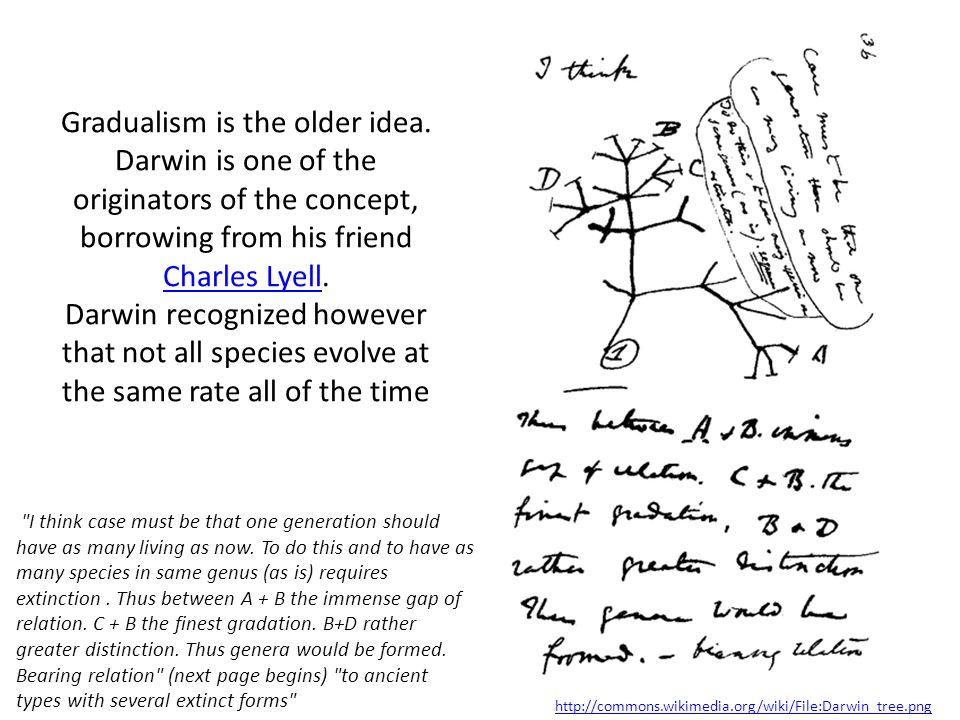 Gradualism is the older idea.
Darwin is one of the
originators of the concept,
borrowing from his friend
Charles Lyell.
Darwin recognized however
that not all species evolve at
the same rate all of the time
"I think case must be that one generation should
have as many living as now. To do this and to have as
many species in same genus (as is) requires
extinction . Thus between A + B the immense gap of
relation. C + B the finest gradation. B+D rather
greater distinction. Thus genera would be formed.
Bearing relation" (next page begins) "to ancient
types with several extinct forms"
36
I think
B
D
C
A
1
Case must be that one
generation then should be
as many living as now
To do this & to have many species in
same genus (as is) requires
extinction.
Thus between A & B. immens
gap of relation. C & B. the
finest gradation, B & D
rather greater distinction
Thus genera would be
formed. – bearing relation
http://commons.wikimedia.org/wiki/File:Darwin_tree.png